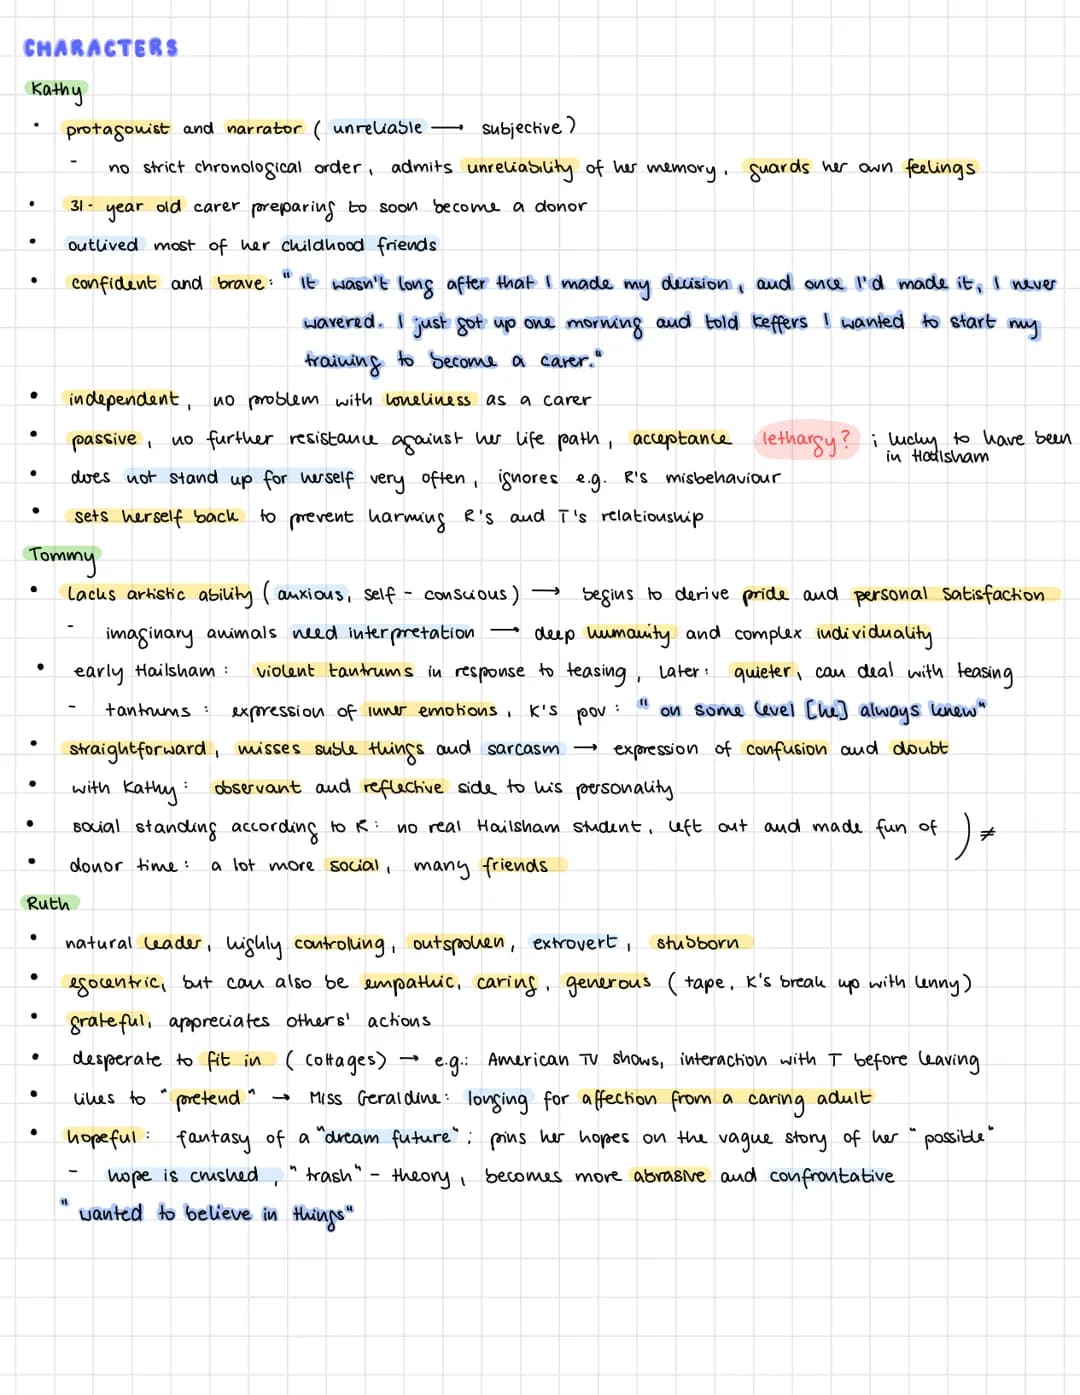 CHARACTERS
Kathy
• protagonist and narrator ( unreliable → subjective )
- no strict chronological order, admits unreliability of her memory, guards her own feelings
• 31- year old carer preparing to soon become a donor
• outlived most of her childhood friends
• confident and brave: "It wasn't long after that I made my decision, and once I'd made it, I never
wavered. I just got up one morning and told Keffers I wanted to start my
training to become a carer."
• independent, no problem with loneliness as a carer
• passive, no further resistance against her life path, acceptance lethargy? ; lucky to have been
in Hailsham
• does not stand up for herself very often, ignores e.g. R's misbehaviour
• sets herself back to prevent harming R's and T's relationship
Tommy
• Lacks artistic ability ( anxious, self - conscious ) → begins to derive pride and personal satisfaction
- imaginary animals need interpretation → deep humanity and complex individuality
• early Hailsham : violent tantrums in response to teasing, Later: quieter, can deal with teasing
- tantrums : expression of inner emotions, K's pov : "on some level [he] always knew"
• straightforward, misses suble things and sarcasm → expression of confusion and doubt
• with Kathy: observant and reflective side to his personality
• social standing according to K: no real Hailsham student, left out and made fun of ) ≠
• donor time: a lot more social, many friends
Ruth
• natural leader, highly controlling, outspoken, extrovert, stubborn
• egocentric, but can also be empathic, caring, generous ( tape, K's break up with Lenny )
• grateful, appreciates others' actions
• desperate to fit in ( cottages ) → e.g.: American TV shows, interaction with T before leaving
• likes to "pretend" → Miss Geraldine: longing for affection from a caring adult
• hopeful: fantasy of a "dream future"; pins her hopes on the vague story of her "possible"
- hope is crushed, "trash" - theory, becomes more abrasive and confrontative
"wanted to believe in things"